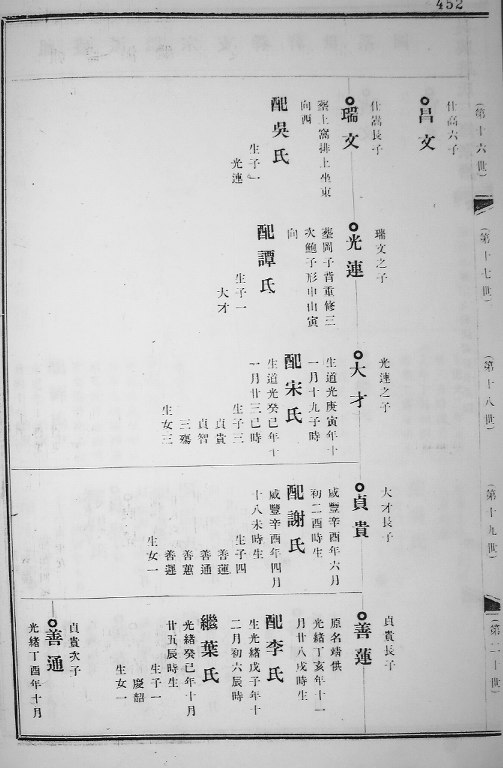 452
(第十六世)
仕高六子
○昌文
仕嵩長子
○瑞文
塟上窩排上坐東
向西
配吳氏
生子一
光連
(第十七世)
瑞文之子
○光連
塟岡子背重修三
次鮑子形申山寅
向
配譚氏
生子一
大才
(第十八世)
光連之子
○大才
生道光庚寅年十
一月十九子時
配宋氏
生道光癸巳年十
一月廿三巳時
生子三
貞貴
貞智
三殤
生女三
(第十九世)
大才長子
○貞貴
咸豐辛酉年六月
初二酉時生
配謝氏
咸豐辛酉年四月
十八未時生
生子四
善蓮
善通
善蕙
善選
生女一
(第二十世)
貞貴長子
○善蓮
原名靖供
光緒丁亥年十一
月廿八戌時生
配李氏
生光緒戊子年十
二月初六辰時
繼葉氏
光緒癸巳年十月
廿五辰時生
生子一
慶韶
生女一
貞貴次子
○善通
光緒丁酉年十月